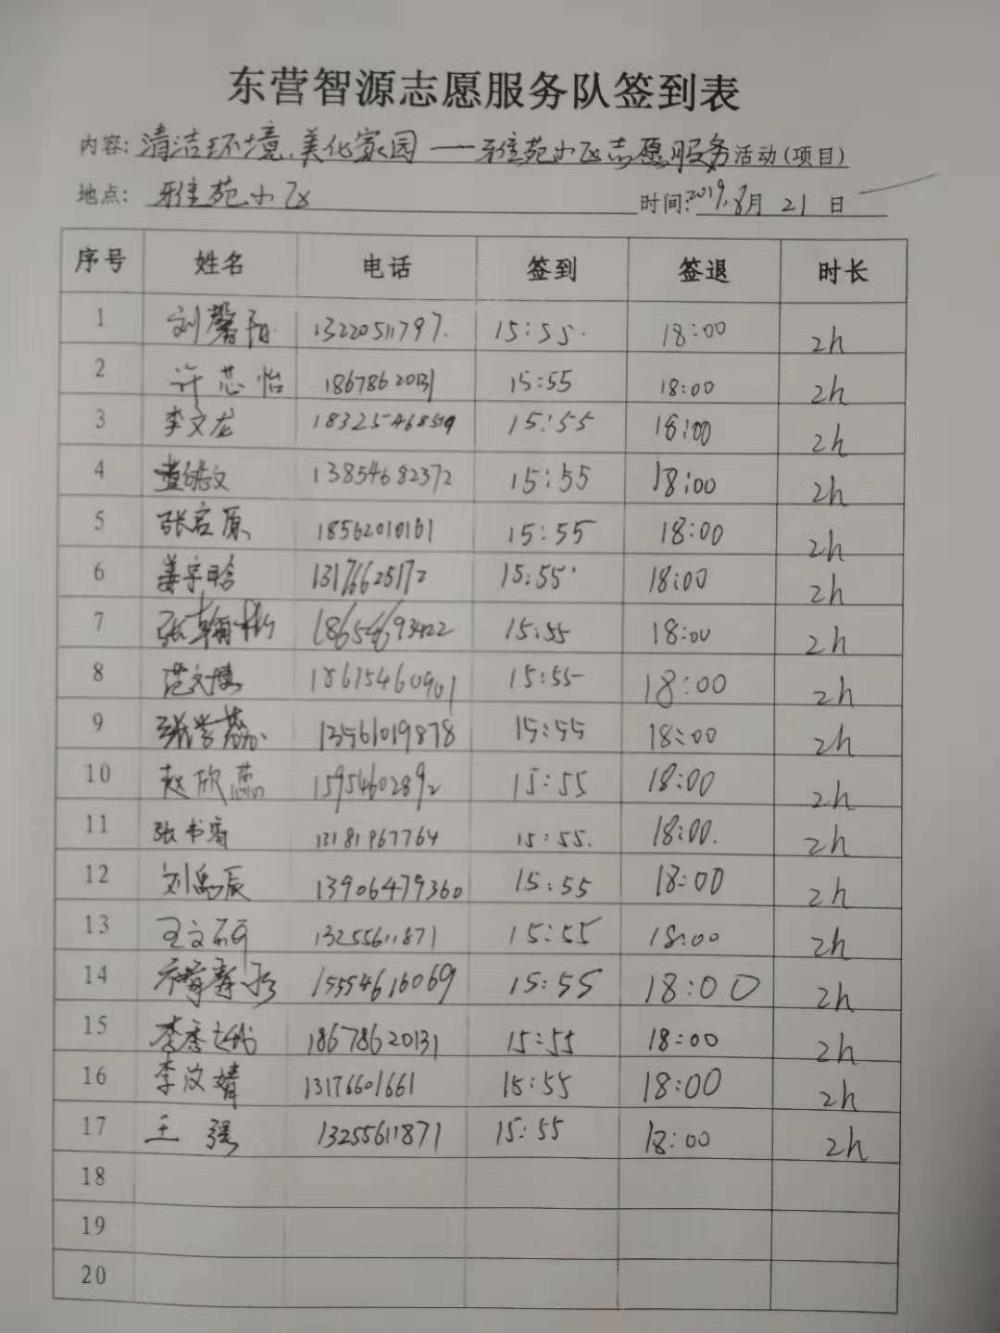 东营智源志愿服务队签到表
内容:清洁环境、美化家园——雅苑小区志愿服务活动(项目)
地点:雅苑小区 时间:2019.8月21日
序号 姓名 电话 签到 签退 时长
1 刘馨阳 13220511797. 15:55. 18:00 2h
2 许芯怡 18678620131 15:55 18:00 2h
3 李文龙 15:55 18:00 2h
4 13854682372 15:55 18:00 2h
5 张启原 18562010101 15:55 18:00 2h
6 姜宇晗 13176625172 15:55 18:00 2h
7 张翰彬 18654693422 15:55 18:00 2h
8 范文博 15:55 18:00 2h
9 13561019878 15:55 18:00 2h
10 赵欣蕊 15954602892 15:55 18:00 2h
11 张书睿 13181967764 15:55. 18:00. 2h
12 刘禹辰 13906479360 15:55 18:00 2h
13 王文硕 13255611871 15:55 18:00 2h
14 15554616069 15:55 18:00 2h
15 18678620131 15:55 18:00 2h
16 李汶婧 13176601661 15:55 18:00 2h
17 王强 13255611871 15:55 18:00 2h
18
19
20